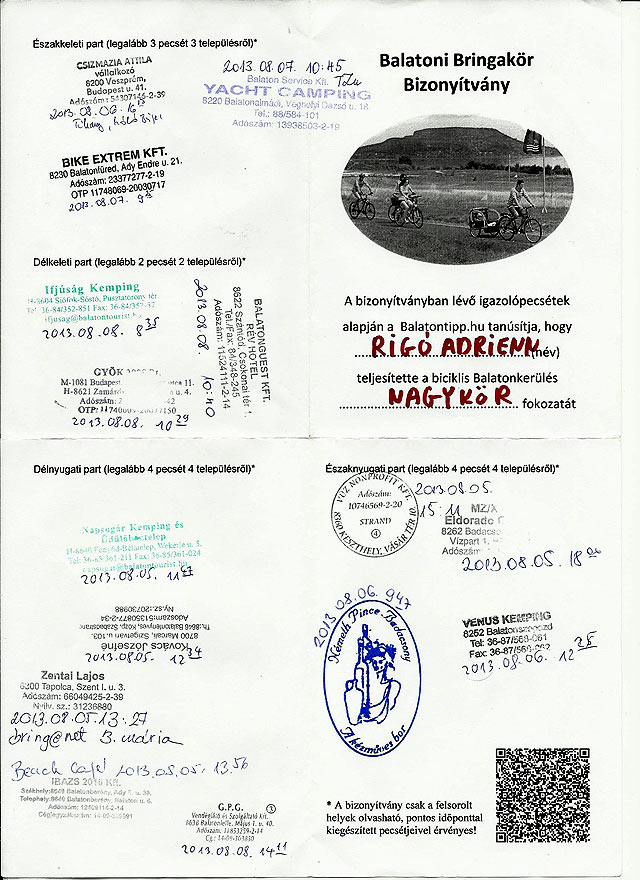 Északkeleti part (legalább 3 pecsét 3 településről)*
CSIZMAZIA ATTILA
vállalkozó
8200 Veszprém,
Budapest u. 41.
Adószám: 51307145-2-39
2013.08.06. 16
Tihany,
2013.08.07. 10:45
Balaton Service Kft.
YACHT CAMPING
8220 Balatonalmádi, Véghelyi Dezső u. 18.
Tel.: 88/584-101
Adószám: 13938503-2-19
BIKE EXTREM KFT.
8230 Balatonfüred, Ady Endre u. 21.
Adószám: 23377277-2-19
OTP 11748069-20030717
2013.08.07. 9
Balatoni Bringakör
Bizonyítvány
A bizonyítványban lévő igazolópecsétek
alapján a Balatontipp.hu tanúsítja, hogy
RIGÓ ADRIENN (név)
teljesítette a biciklis Balatonkerülés
NAGYKÖR fokozatát
Délkeleti part (legalább 2 pecsét 2 településről)*
Ifjúság Kemping
H-8604 Siófok-Sóstó, Pusztatorony tér
Tel: 36-84/352-851 Fax: 36-84/352-
ifjusag@balatontourist.hu
2013.08.08. 8 35
BALATONGUEST KFT.
RÉV HOTEL
8622 Szántód, Csokonai tér 1.
Tel./Fax: 84/348-245
Adószám: 11524111-2-14
2013.08.08. 10:40
GYÖK
M-1081 Budapest, 11.
H-8621 Zamárdi, u. 4.
Adószám: 2 42
OTP: 11740009-20077150
2013.08.08. 10 29
Délnyugati part (legalább 4 pecsét 4 településről)*
Napsugár Kemping és
Üdülőháztelep
H-8640 Fonyód-Bélatelep, Wekerle u. 5.
Tel: 36-85/361-211 Fax: 36-85/361-024
napsugar@balatontourist.hu
2013.08.05. 11 47
Kovács Józsefné
8700 Marcali, Szigetvári u. 103.
Th: 8649 Balatonfenyves, Közp. Szabadstrand
Adószám: 51450877-2-34
Ny.sz.: 20730988
2013.08.05. 12 24
Zentai Lajos
8300 Tapolca, Szent I. u. 3.
Adószám: 66049425-2-39
Nyilv. sz.: 31236880
2013.08.05. 13.27
bring@net B. mária
Beach Café 2013.08.05. 13.56
IBAZS 2010 Kft.
Székhely: 8649 Balatonberény, Ady E. u. 39.
Telephely: 8649 Balatonberény, Balaton u. 6.
G.P.G. 3
Vendéglátó és Szolgáltató Kft.
8638 Balatonlelle, Május 1. u. 40.
Adószám: 11893259-2-14
Cg.: 14-09-303830
2013.08.08. 14 11
Északnyugati part (legalább 4 pecsét 4 településről)*
VÜZ NONPROFIT KFT.
Adószám:
10746569-2-20
STRAND
4
8360 KESZTHELY, VÁSÁR TÉR 10.
2013.08.05.
15:11
MZ/X
Eldorado C
8262 Badacso
Vízpart 1.
Adószám:
2013.08.05. 18
2013.08.06. 9 47
Németh Pince - Badacsony
A kézműves bor
VENUS KEMPING
8252 Balatonszepezd
Tel: 36-87/568-061
Fax: 36-87/568-062
2013.08.06. 12 25
* A bizonyítvány csak a felsorolt
helyek olvasható, pontos időponttal
kiegészített pecsétjeivel érvényes!